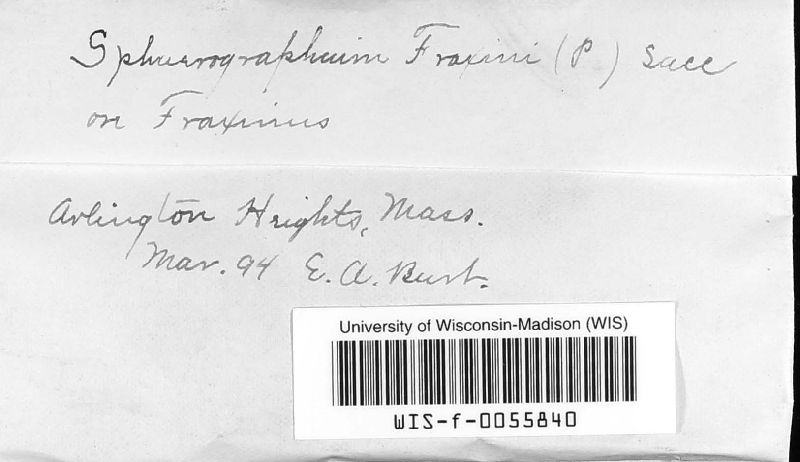 Sphaerographium Fraxini (P) Sacc
on Fraxinus
Arlington Heights, Mass.
Mar. 94 E. A. Burt.
University of Wisconsin-Madison (WIS)
WIS-f-0055840